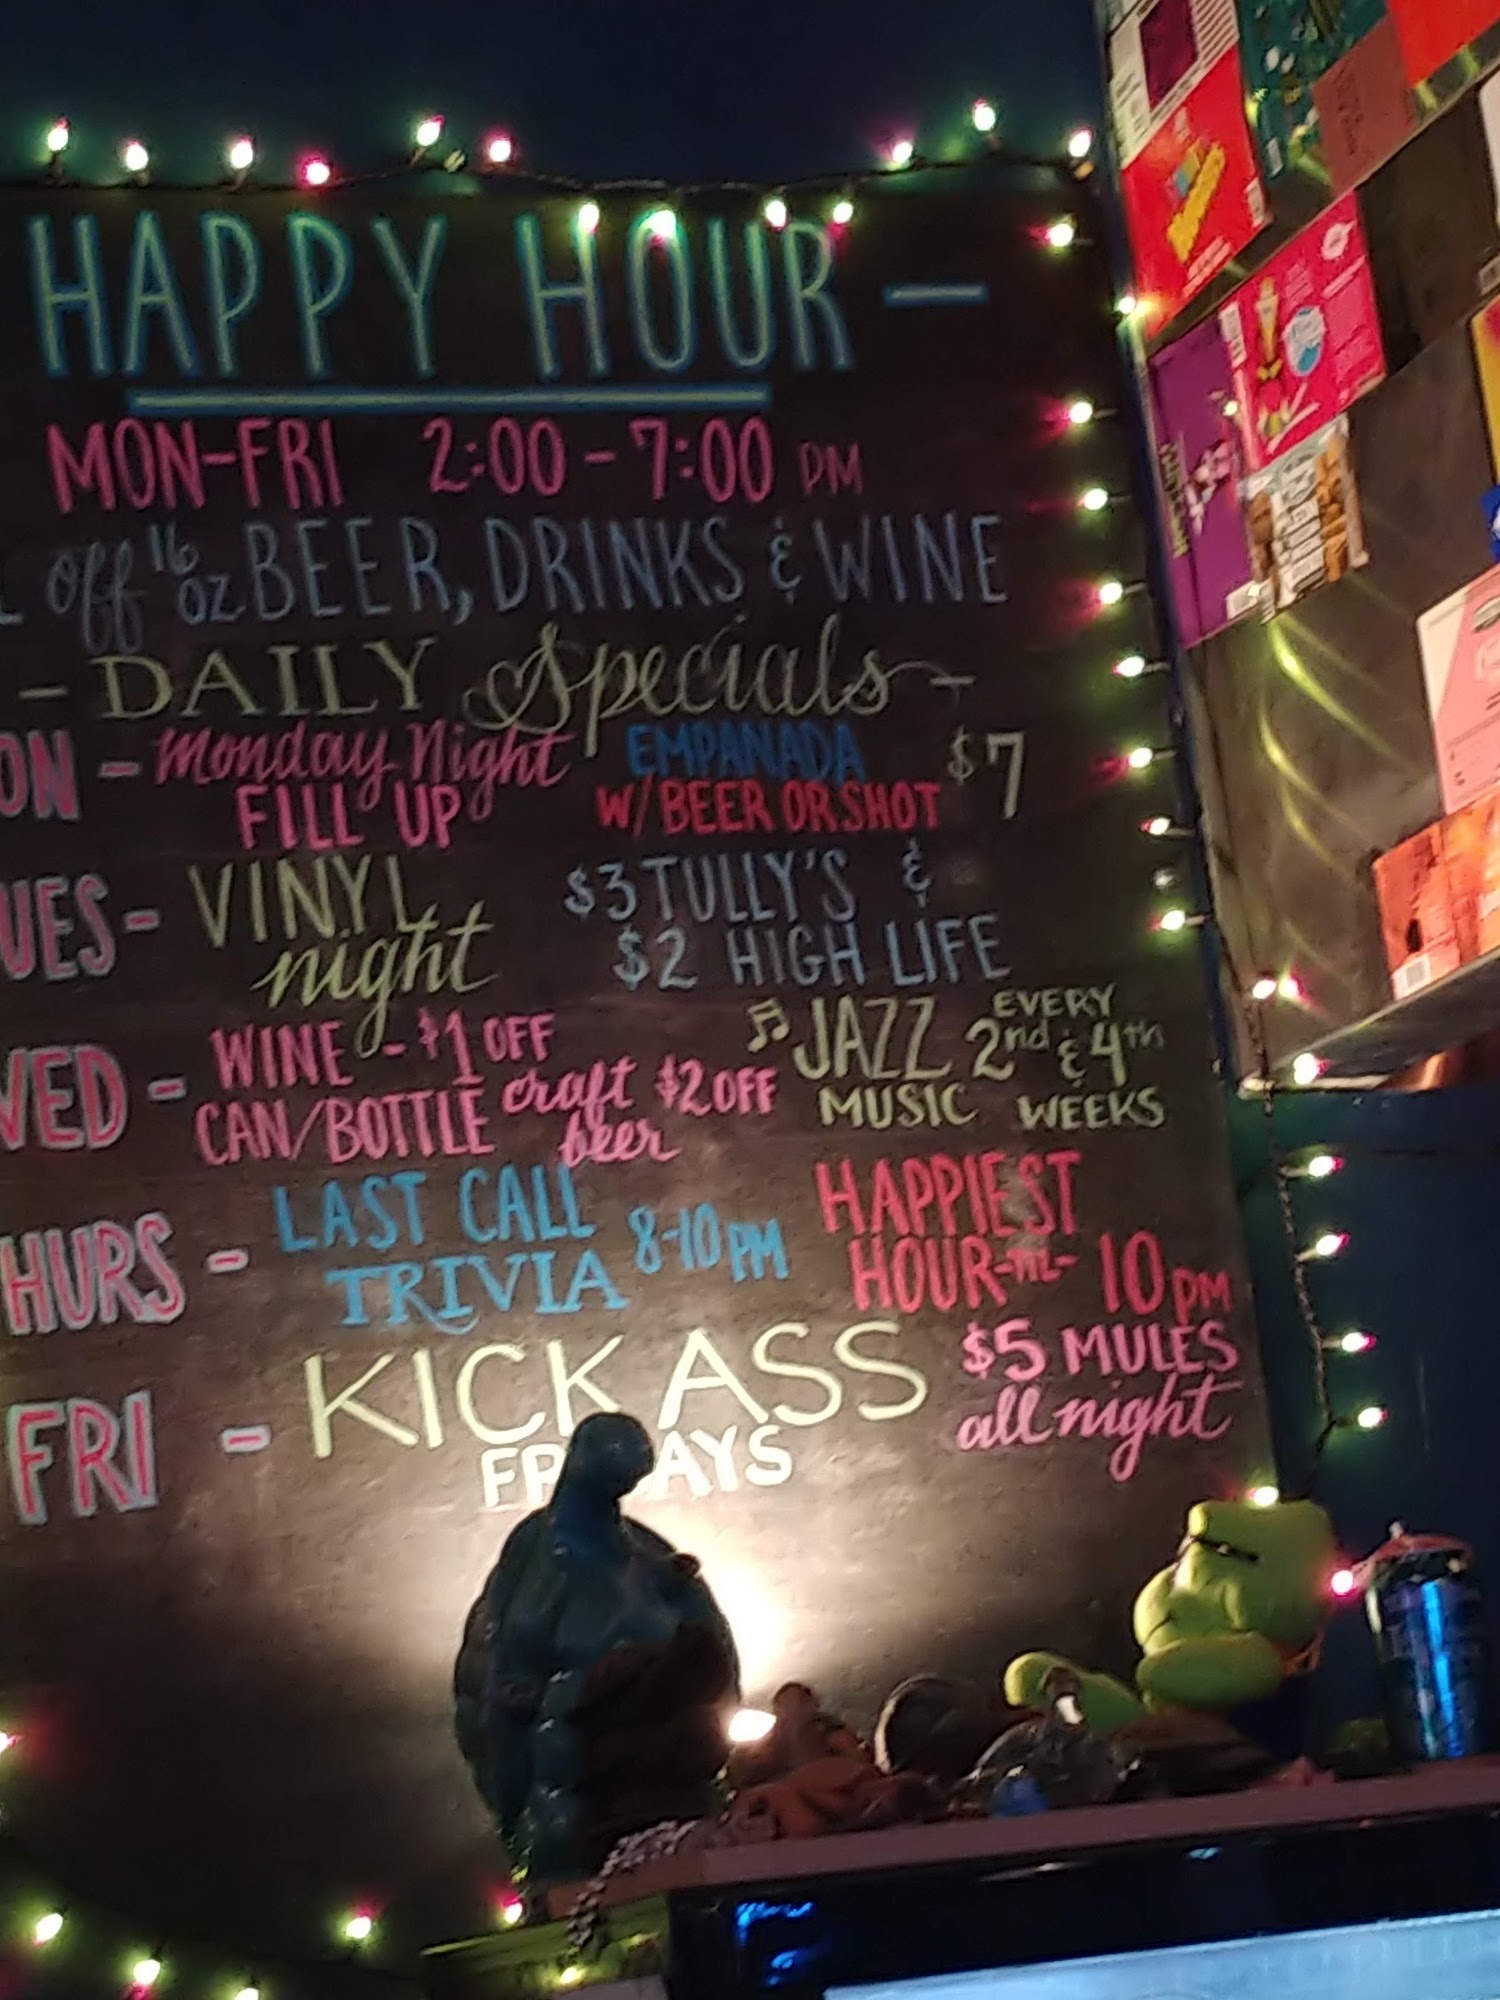 HAPPY HOUR —
MON-FRI 2:00 - 7:00 PM
off 16 oz BEER, DRINKS & WINE
- DAILY Specials -
ON - Monday Night FILL UP EMPANADA W/ BEER OR SHOT $7
UES - VINYL night $3 TULLY'S & $2 HIGH LIFE
WED - WINE - $1 OFF
CAN/BOTTLE craft beer $2 OFF
♫ JAZZ MUSIC EVERY 2nd & 4th WEEKS
HURS - LAST CALL TRIVIA 8-10 PM HAPPIEST HOUR -TIL- 10 PM
FRI - KICK ASS FRIDAYS $5 MULES all night